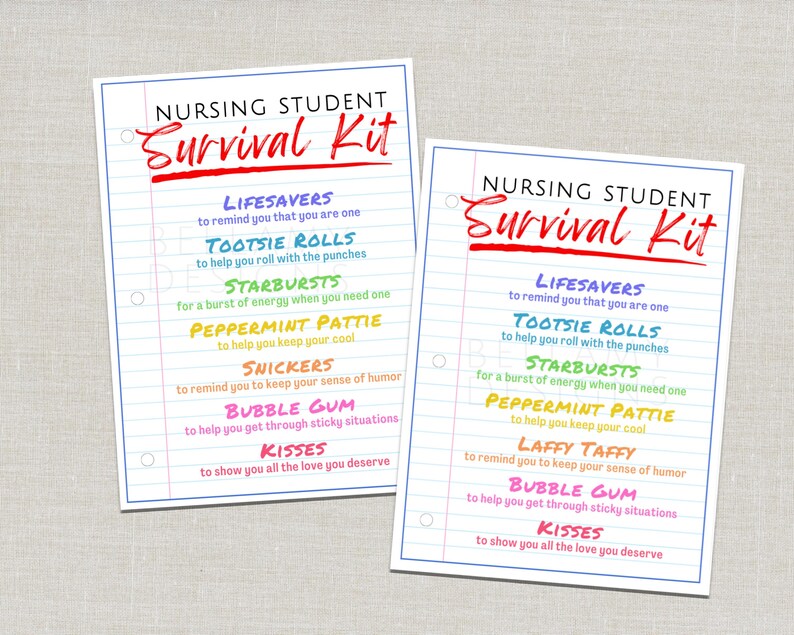 NURSING STUDENT
Survival Kit
LIFESAVERS
to remind you that you are one
TOOTSIE ROLLS
to help you roll with the punches
STARBURSTS
for a burst of energy when you need one
PEPPERMINT PATTIE
to help you keep your cool
SNICKERS
to remind you to keep your sense of humor
BUBBLE GUM
to help you get through sticky situations
KISSES
to show you all the love you deserve
NURSING STUDENT
Survival Kit
LIFESAVERS
to remind you that you are one
TOOTSIE ROLLS
to help you roll with the punches
STARBURSTS
for a burst of energy when you need one
PEPPERMINT PATTIE
to help you keep your cool
LAFFY TAFFY
to remind you to keep your sense of humor
BUBBLE GUM
to help you get through sticky situations
KISSES
to show you all the love you deserve